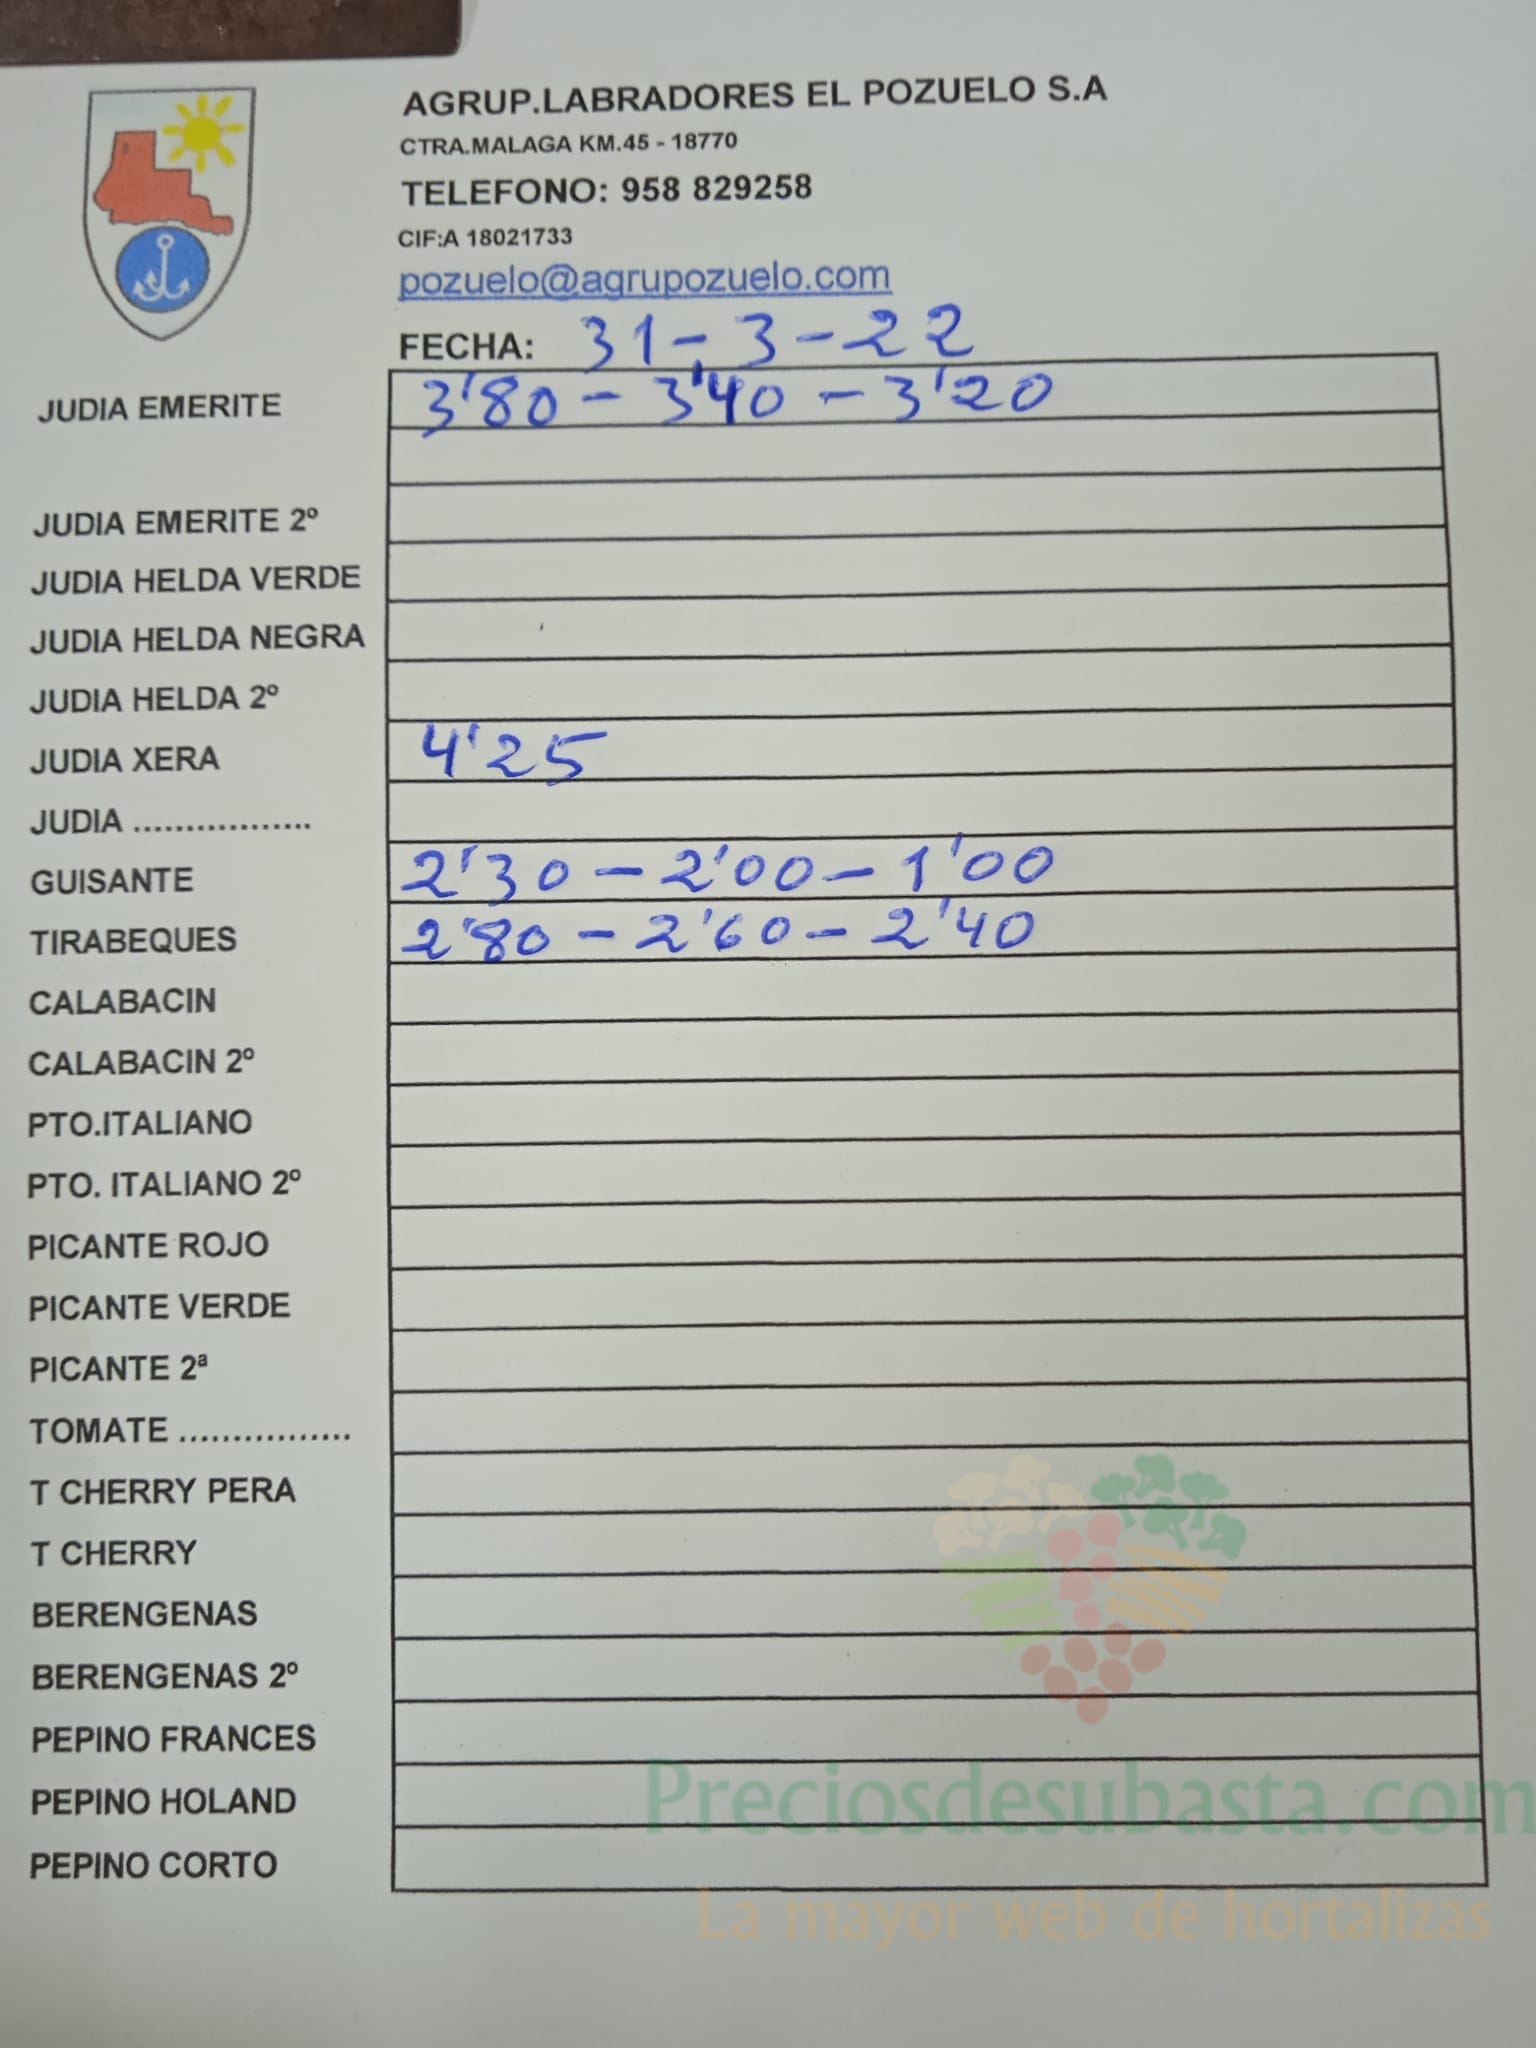 AGRUP.LABRADORES EL POZUELO S.A
CTRA.MALAGA KM.45 - 18770
TELEFONO: 958 829258
CIF:A 18021733
pozuelo@agrupozuelo.com
FECHA: 31-3-22
JUDIA EMERITE 3'80 - 3'40 - 3'20
JUDIA EMERITE 2º
JUDIA HELDA VERDE
JUDIA HELDA NEGRA
JUDIA HELDA 2º
JUDIA XERA 4'25
JUDIA .................
GUISANTE 2'30 - 2'00 - 1'00
TIRABEQUES 2'80 - 2'60 - 2'40
CALABACIN
CALABACIN 2º
PTO.ITALIANO
PTO. ITALIANO 2º
PICANTE ROJO
PICANTE VERDE
PICANTE 2ª
TOMATE ................
T CHERRY PERA
T CHERRY
BERENGENAS
BERENGENAS 2º
PEPINO FRANCES
PEPINO HOLAND
PEPINO CORTO
Preciosdesubasta.com
La mayor web de hortalizas